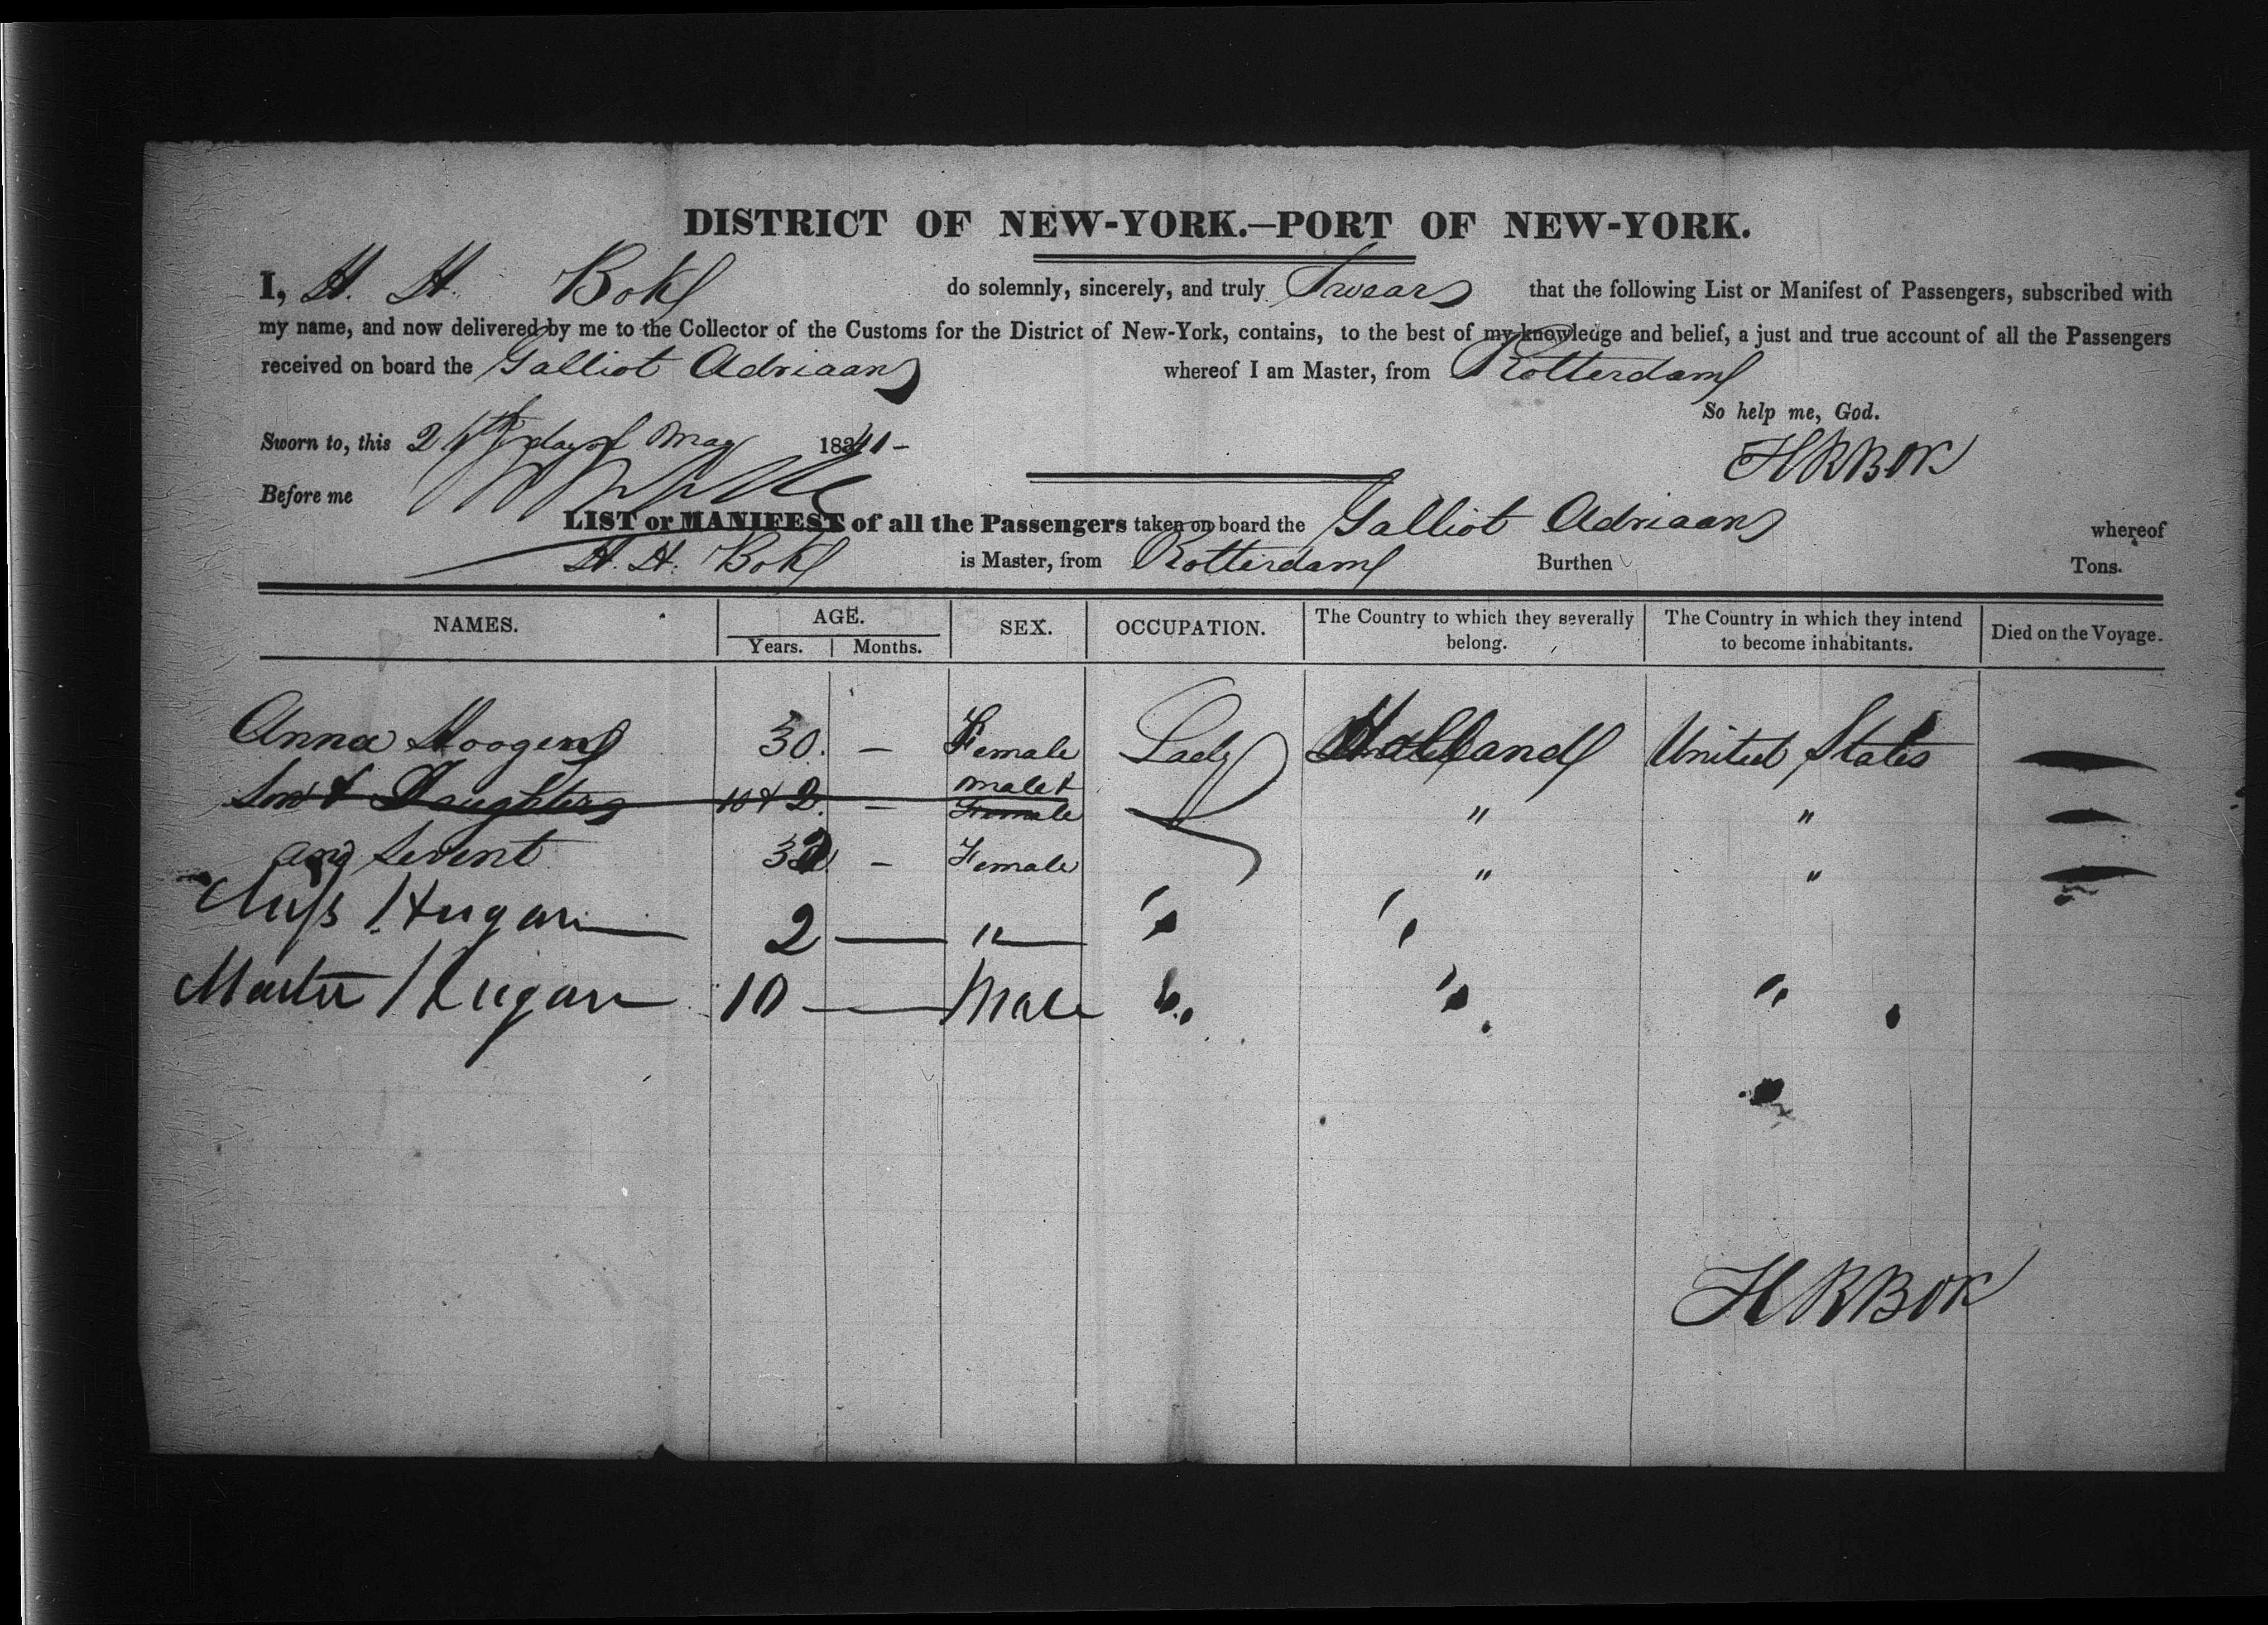 DISTRICT OF NEW-YORK.—PORT OF NEW-YORK.
I, H. H. Bok do solemnly, sincerely, and truly Swear that the following List or Manifest of Passengers, subscribed with
my name, and now delivered by me to the Collector of the Customs for the District of New-York, contains, to the best of my knowledge and belief, a just and true account of all the Passengers
received on board the Galliot Adriaan whereof I am Master, from Rotterdam
So help me, God.
Sworn to, this day of May 1841 - HRBOK
Before me
LIST or MANIFEST of all the Passengers taken on board the Galliot Adriaan whereof
H. H. Bok is Master, from Rotterdam Burthen Tons.
NAMES. AGE. SEX. OCCUPATION. The Country to which they severally belong. The Country in which they intend to become inhabitants. Died on the Voyage.
Years. Months.
Anna Hoogen 30. — Female Lady Holland United States —
Son & Daughter 10 & 2. — Male & Female " " —
and Servent — Female " " —
Miss Hugan 2 — " " "
Master Hugan 10 — Male " " "
HRBOK